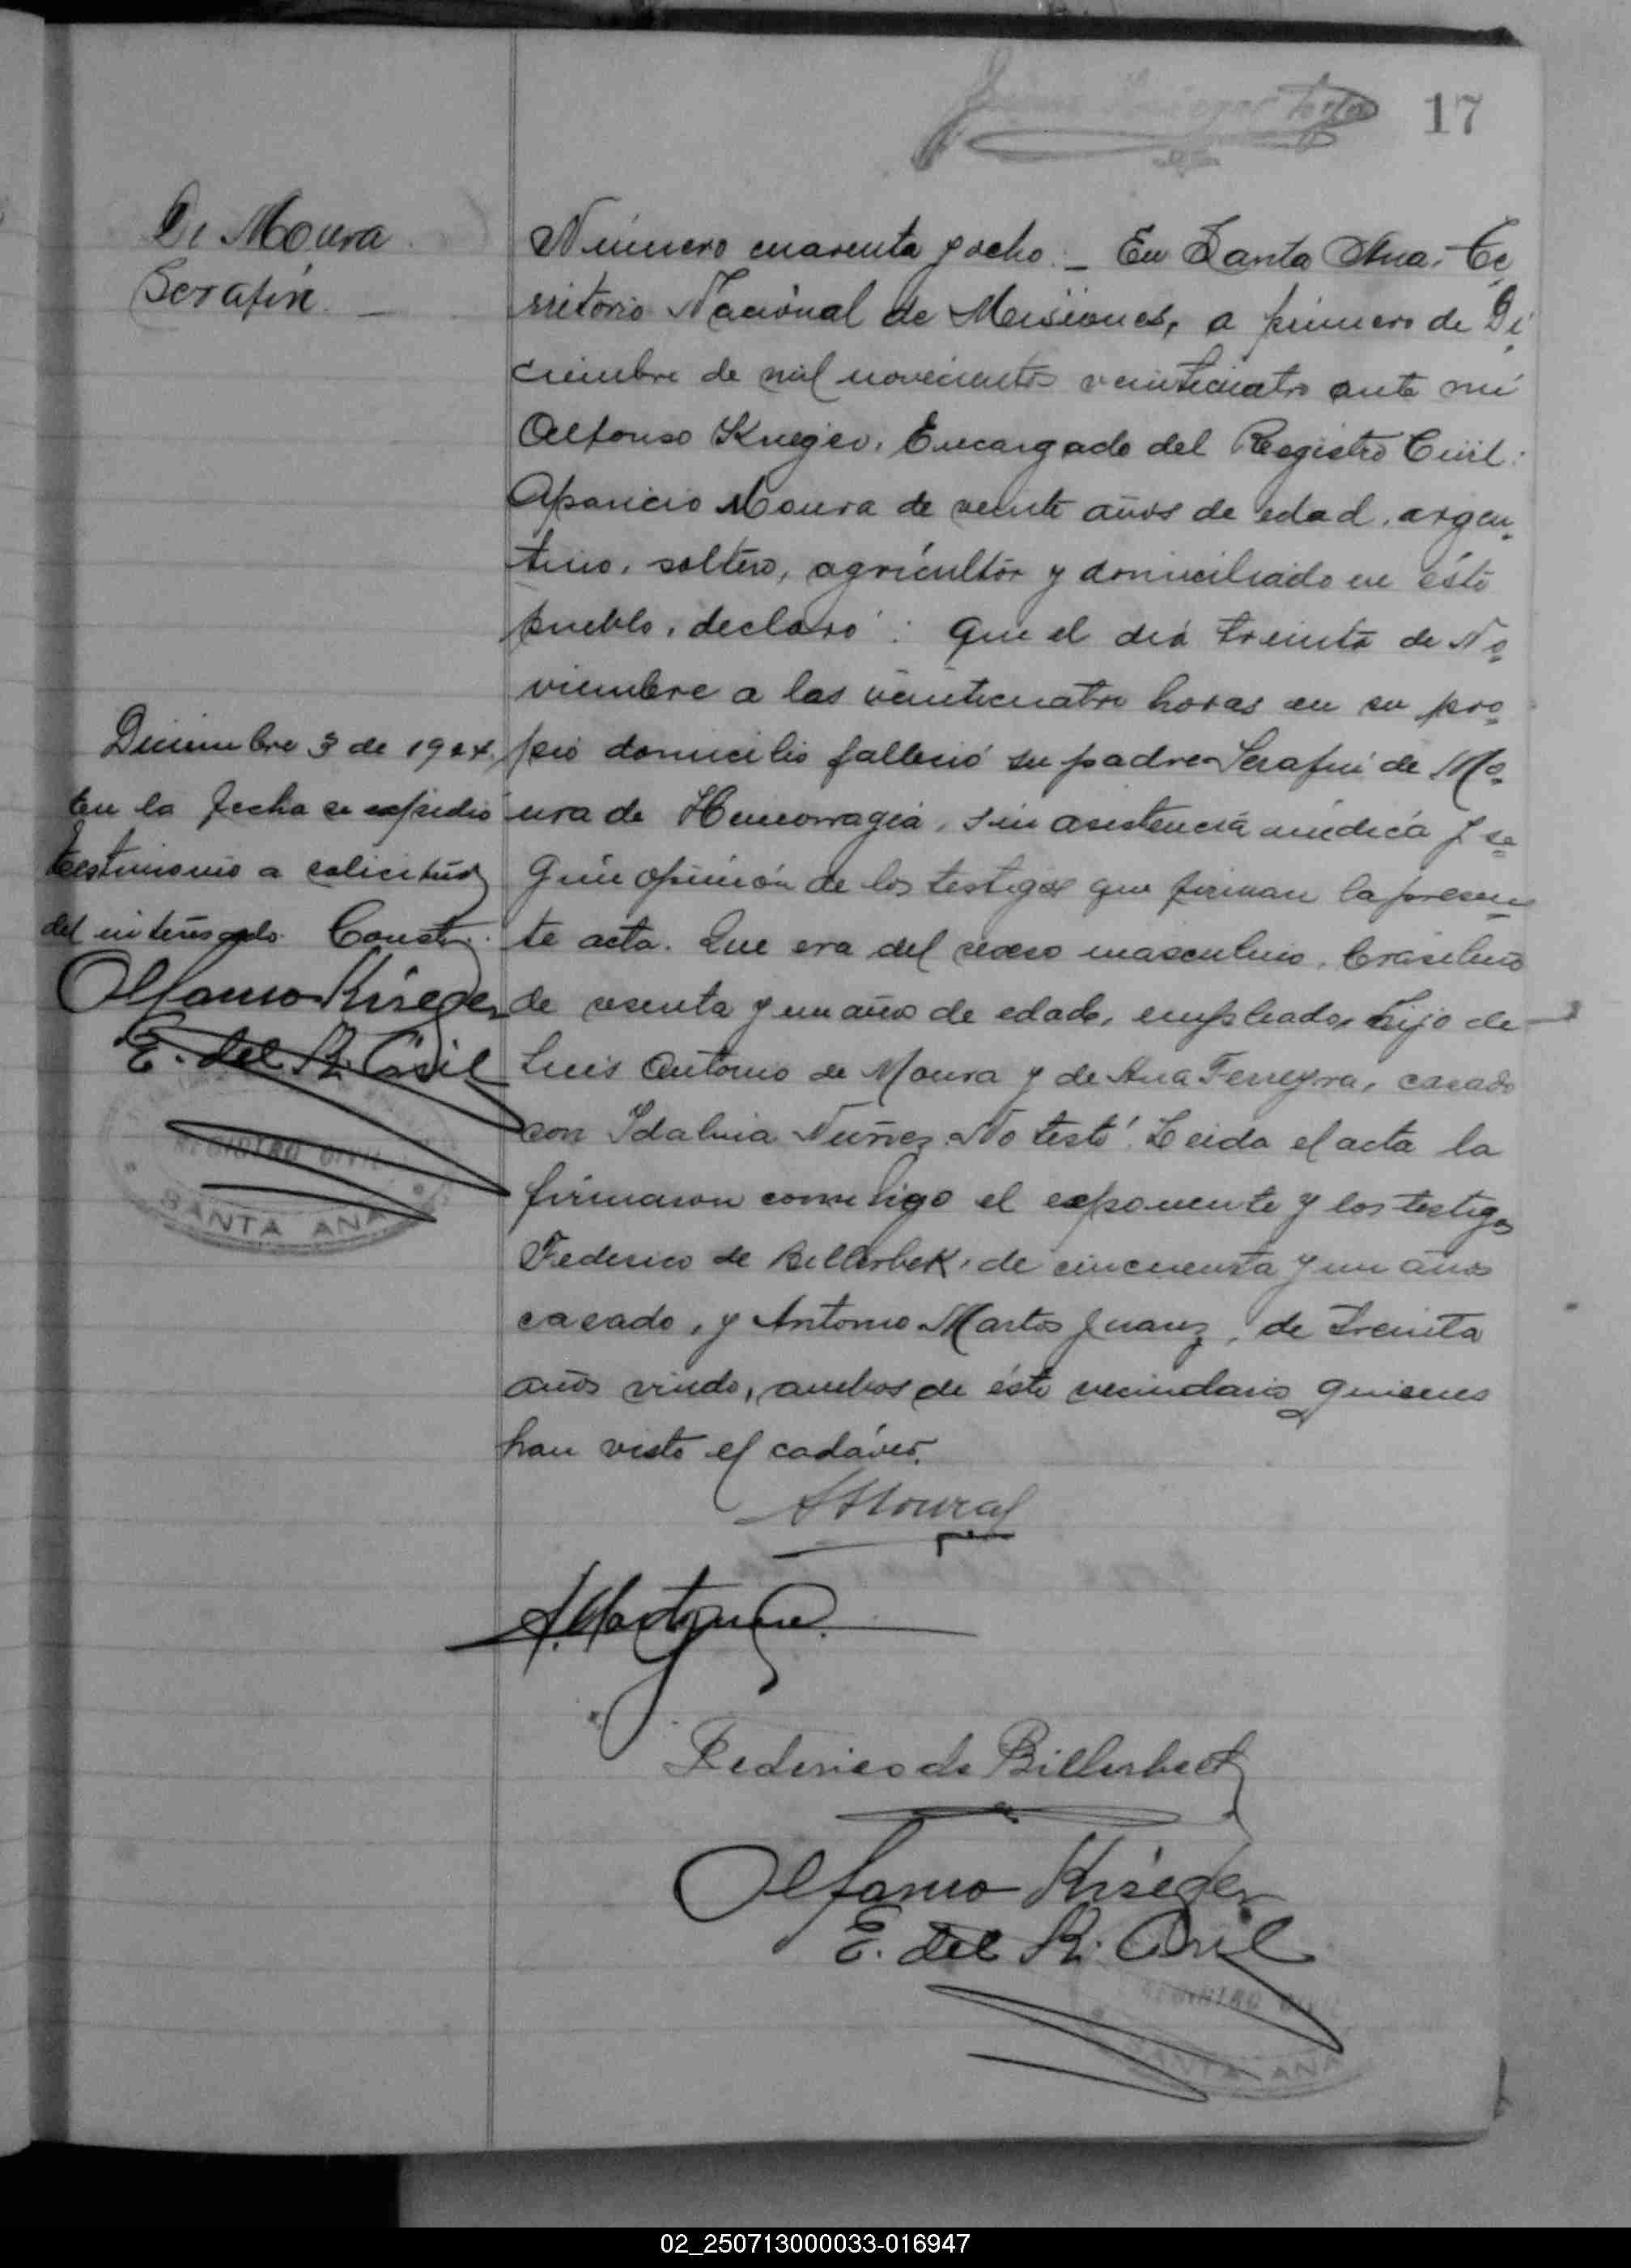 17
De Moura
Serafín. _
Número cuarenta y ocho. _ En Santa Ana, Te=
rritorio Nacional de Misiones, a primero de Di=
ciembre de mil novecientos veinticuatro ante mí
Alfonso Krieger, Encargado del Registro Civil:
Aparicio Moura de veinte años de edad, argen=
tino, soltero, agricultor y domiciliado en éste
pueblo, declaró: Que el día treinta de No=
viembre a las veinticuatro horas en su pro=
pio domicilio falleció su padre Serafín de Mo=
ura de Hemorragia, sin asistencia médica y se=
gún opinión de los testigos que firman la presen=
te acta. Que era del sexo masculino, brasileño
de sesenta y un años de edad, empleado, hijo de
Luis Antonio de Moura y de Ana Ferreyra, casado
con Idalina Nuñez. No testó. Leida el acta la
firmaron conmigo el exponente y los testigos
Federico de Billerbek, de cincuenta y un años
casado, y Antonio Martos Juanz, de treinta
años viudo, ambos de éste vecindario quienes
han visto el cadáver.
Diciembre 3 de 1924,
En la fecha se expidió
testimonio a solicitud
del interesado. Conste.
Alfonso Krieger
E. del R. Civil
REGISTRO CIVIL
SANTA ANA
AMoura
Federico de Billerbeck
Alfonso Krieger
E. del R. Civil
REGISTRO CIVIL
SANTA ANA
02_250713000033-016947